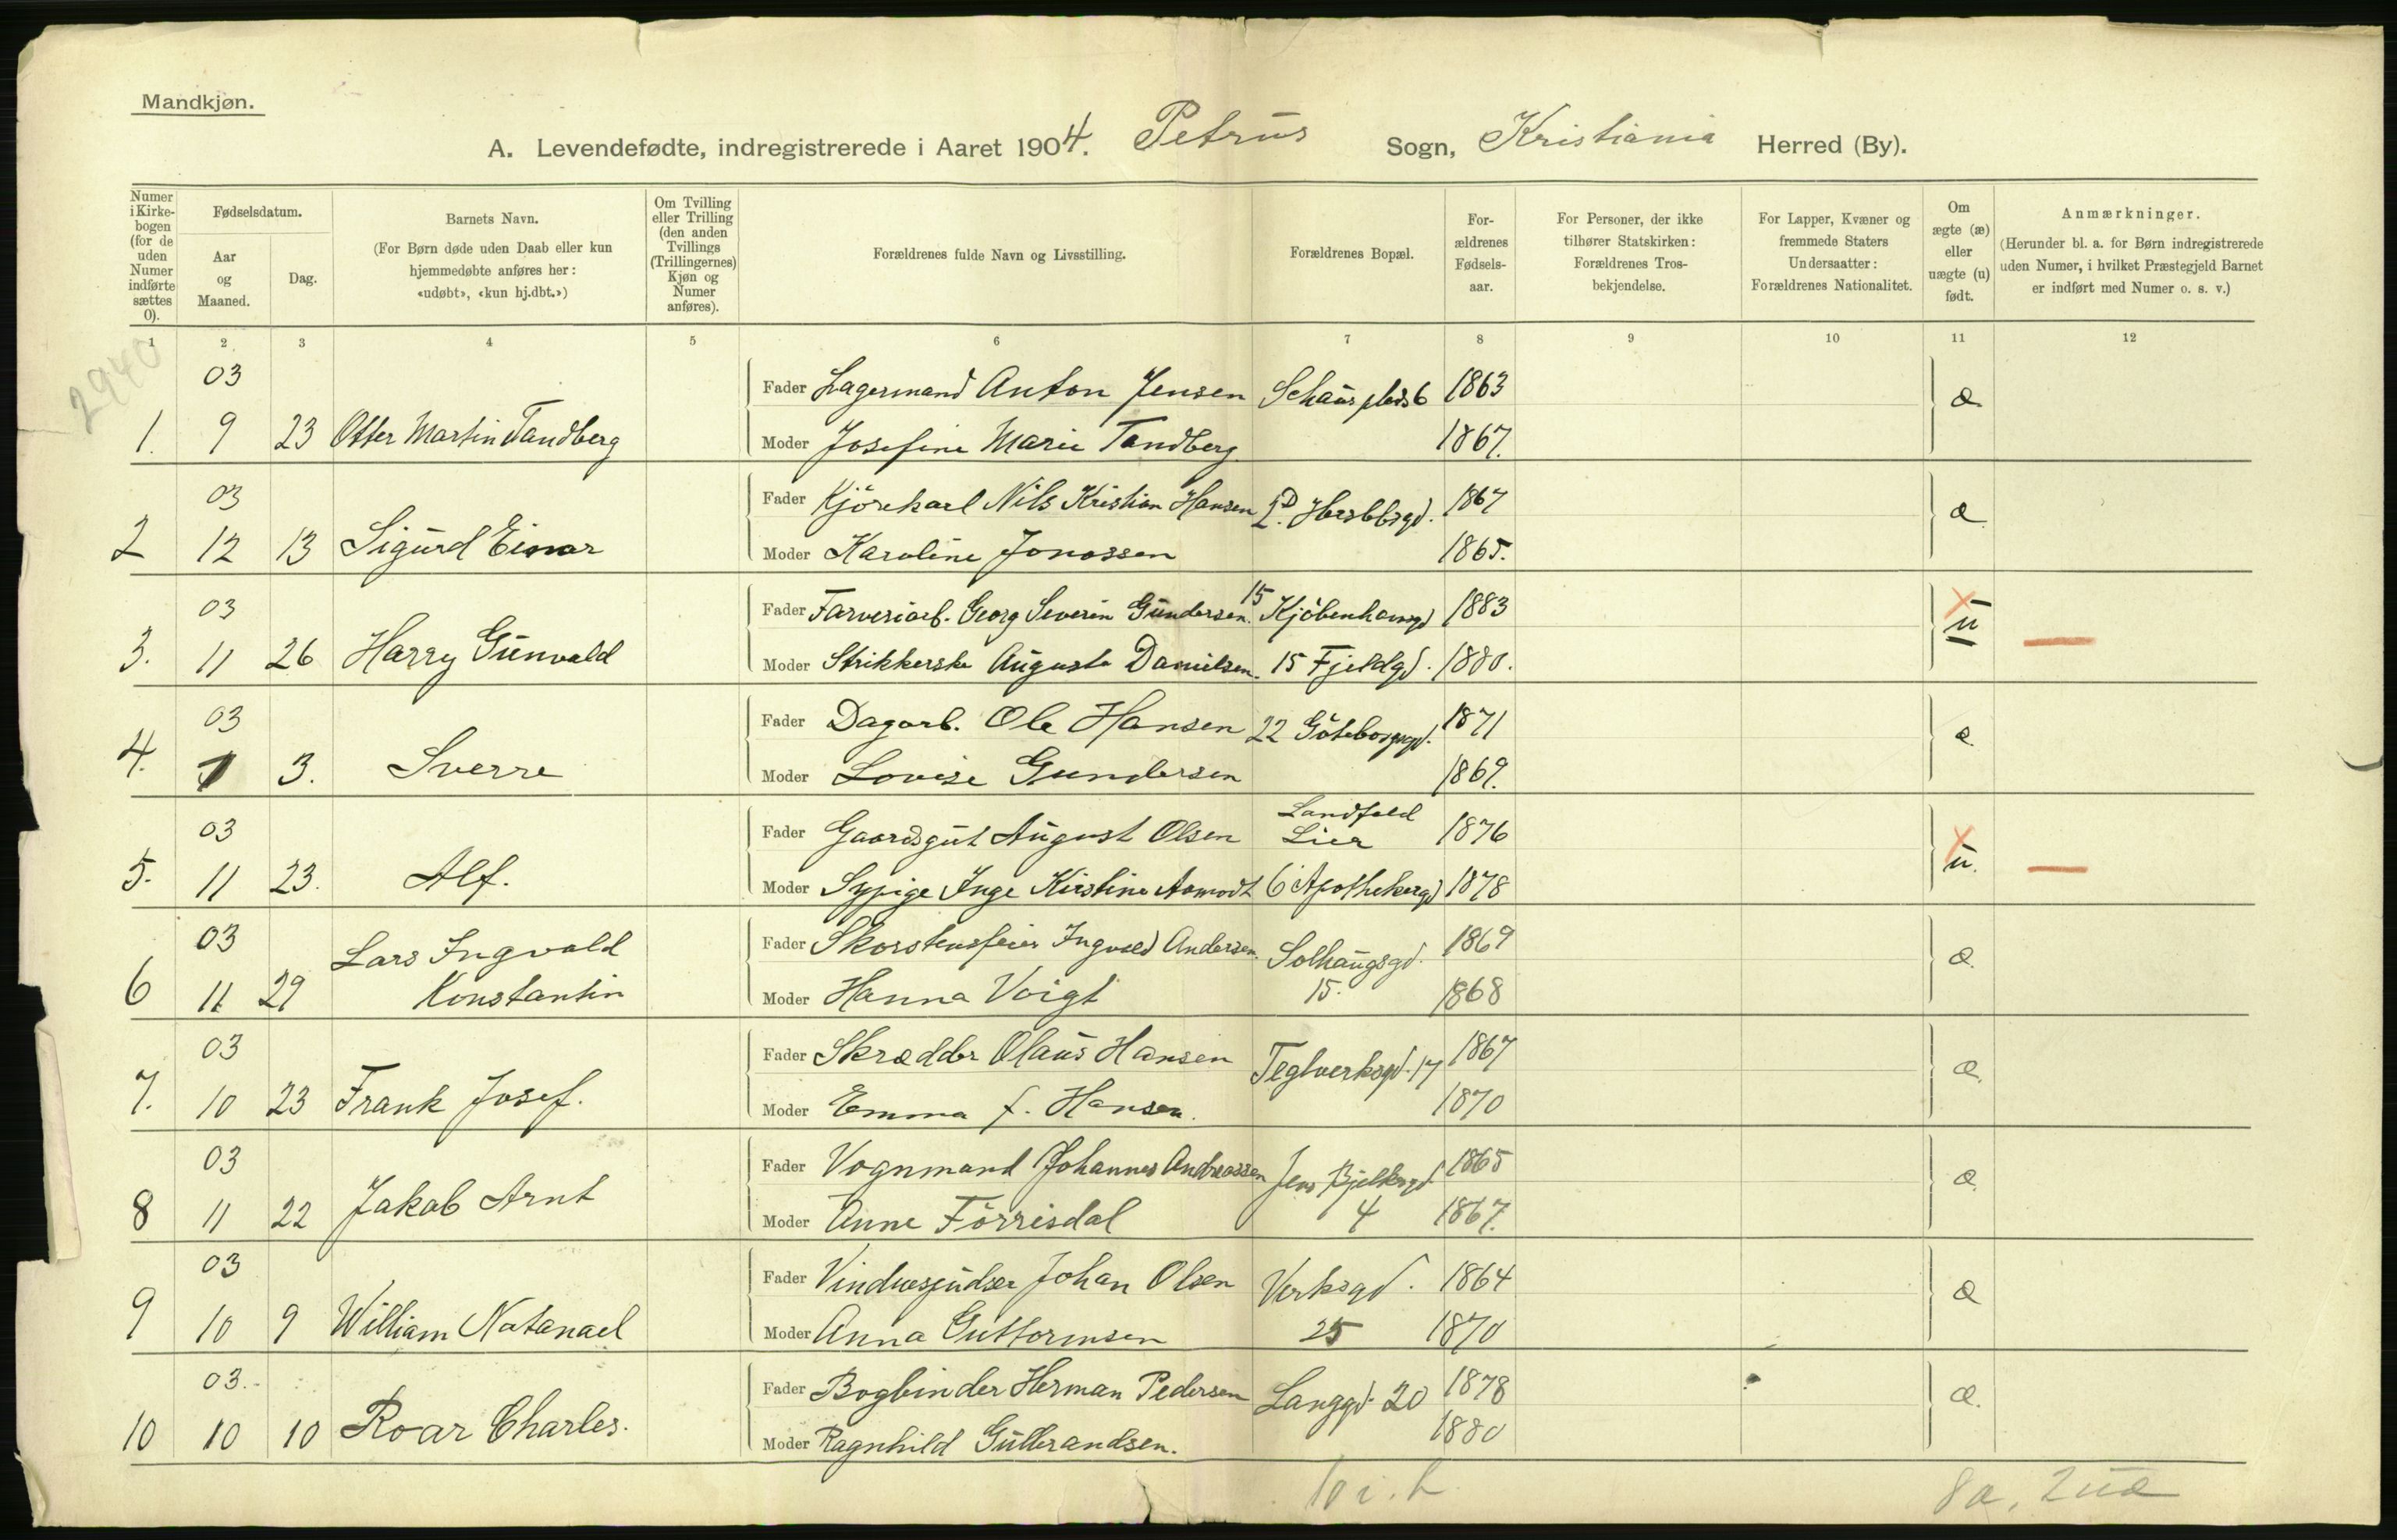 Mandkjøn.
A. Levendefødte, indregistrerede i Aaret 1904. Petrus Sogn, Kristiania Herred (By).
Numer i Kirkebogen (for de uden Numer indførte sættes 0).
Fødselsdatum.
Aar og Maaned.
Dag.
Barnets Navn.
(For Børn døde uden Daab eller kun
hjemmedøbte anføres her:
«udøbt», «kun hj.dbt.»)
Om Tvilling
eller Trilling
(den anden
Tvillings
(Trillingernes)
Kjøn og
Numer
anføres).
Forældrenes fulde Navn og Livsstilling.
Forældrenes Bopæl.
For-
ældrenes
Fødsels-
aar.
For Personer, der ikke
tilhører Statskirken:
Forældrenes Tros-
bekjendelse.
For Lapper, Kvæner og
fremmede Staters
Undersaatter:
Forældrenes Nationalitet.
Om
ægte (æ)
eller
uægte (u)
født.
Anmærkninger.
(Herunder bl. a. for Børn indregistrerede
uden Numer, i hvilket Præstegjeld Barnet
er indført med Numer o. s. v.)
1 2 3 4 5 6 7 8 9 10 11 12
2940
03 Fader Lagermand Anton Jensen Schaus plads 6 1863 æ
1. 9 23 Otter Martin Tandberg Moder Josefine Marie Tandberg 1867.
03 Fader Kjörekarl Nils Kristian Hansen 2D. Herslebsgd. 1867 æ
2 12 13 Sigurd Einar Moder Karoline Jonassen 1865.
03 Fader Farveriarb. Georg Severin Gundersen. 15 Kjöbenhavngd 1883 u
3. 11 26 Harry Gunvald Moder Strikkerske Augusta Danielsen. 15 Fjeldgd. 1880.
03 Fader Dagarb. Ole Hansen 22 Göteborggd. 1871 æ
4. 3. Sverre Moder Lovise Gundersen 1869.
03 Fader Gaardsgut August Olsen Landfald Lier 1876 u.
5. 11 23. Alf. Moder Sypige Inga Kirstine Aamodt 6 Apothekergd 1878
03 Lars Ingvald Fader Skorstensfeier Ingvald Andersen. Solhaugsgd. 1869 æ
6 11 29 Konstantin Moder Hanna Voigt 15. 1868
03 Fader Skrædder Olaus Hansen Teglverksgd. 17 1867 æ.
7. 10 23 Frank Josef. Moder Emma f. Hansen. 1870
03 Fader Vognmand Johannes Andreassen Jens Bjelkesgd 1865 æ
8 11 22 Jakab Arnt Moder Anne Förrisdal 4 1867.
03 Fader Vinduespudser Johan Olsen Verksgd. 1864 æ
9 10 9 William Natanael Moder Anna Guttormsen 25 1870
03. Fader Bogbinder Herman Pedersen Langgd. 20 1878 æ.
10 10 10 Roar Charles. Moder Ragnhild Gulbrandsen. 1880
10 i. h. 8 æ, 2 uæ